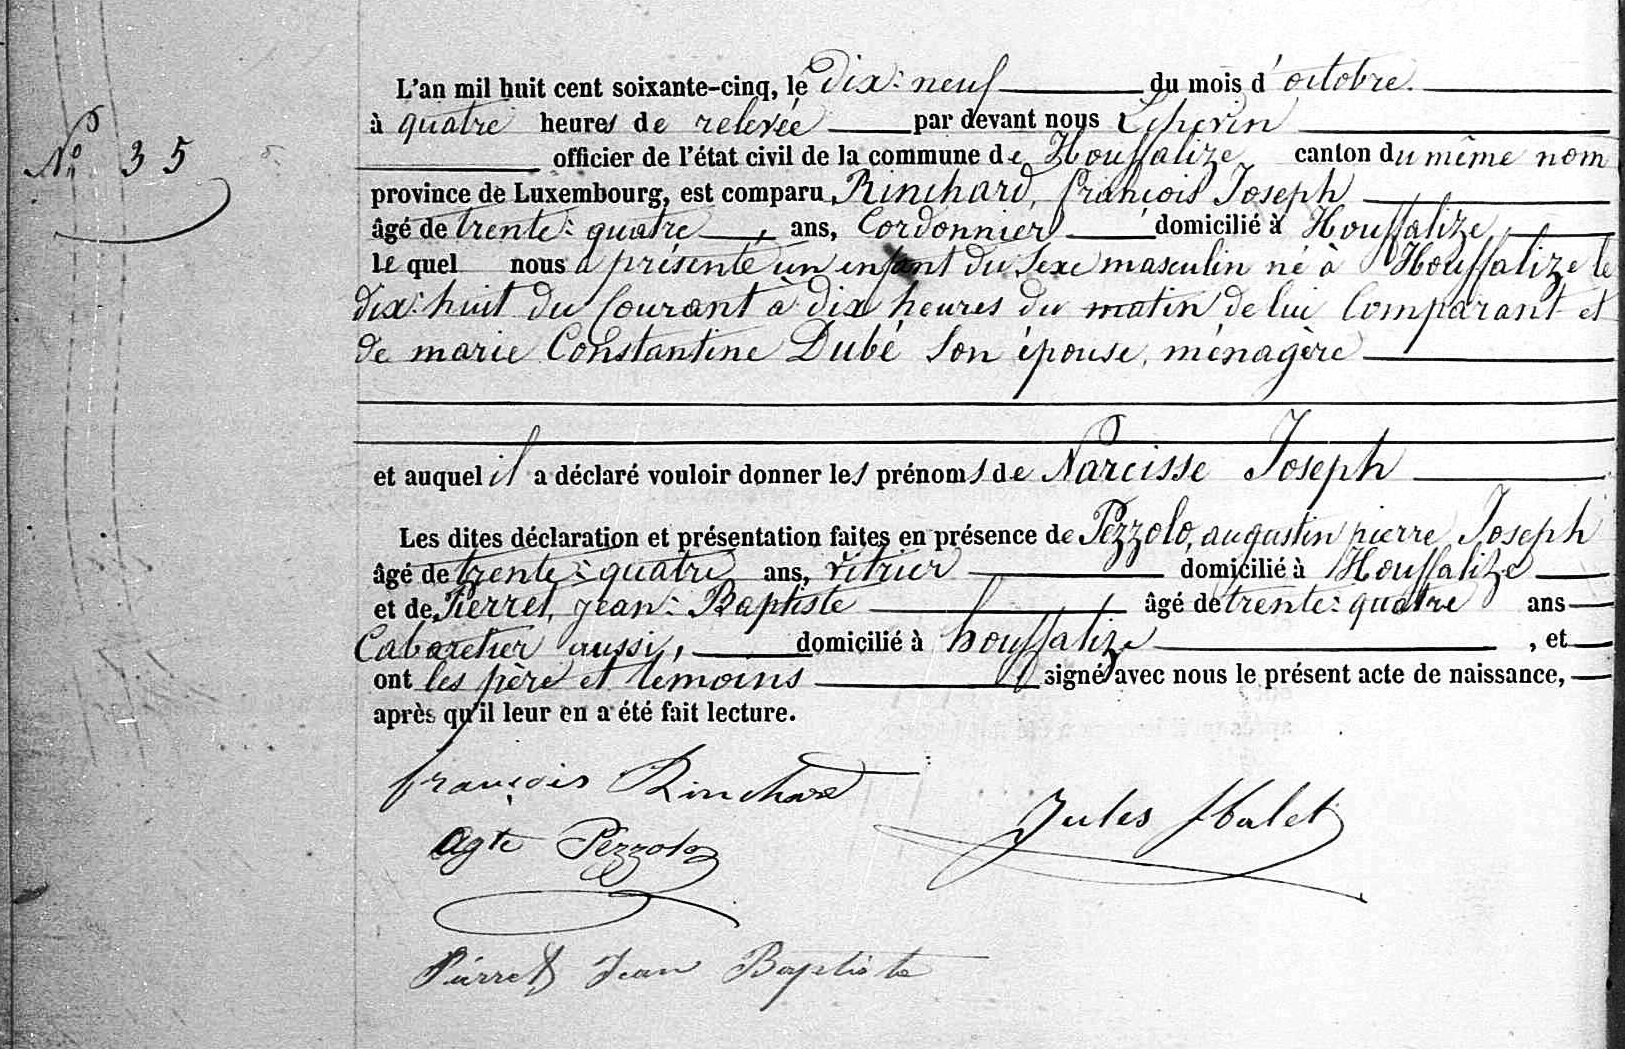 L'an mil huit cent soixante-cinq, le dix-neuf du mois d'octobre.
à quatre heures de relevée par devant nous
N° 35
officier de l'état civil de la commune de Houffalize canton du même nom
province de Luxembourg, est comparu Rinchard, françois Joseph
âgé de trente-quatre ans, Cordonnier domicilié à Houffalize
lequel nous a présenté un enfant du sexe masculin né à Houffalize le
dix-huit du Courant à dix heures du matin de lui Comparant et
de marie Constantine Dubé son épouse, ménagère
et auquel il a déclaré vouloir donner les prénoms de Narcisse Joseph
Les dites déclaration et présentation faites en présence de Pezzolo, augustin pierre Joseph
âgé de trente-quatre ans, vitrier domicilié à Houffalize
et de Pierret, jean-Baptiste âgé de trente-quatre ans
Cabaretier aussi, domicilié à houffalize, et
ont les père et témoins signé avec nous le présent acte de naissance,
après qu'il leur en a été fait lecture.
françois Rinchard
Jules
Agte Pezzolo
Pierret Jean Baptiste